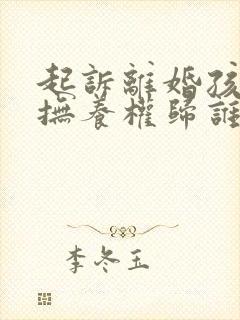 起訴離婚孩
撫養權歸誰
李冬玉